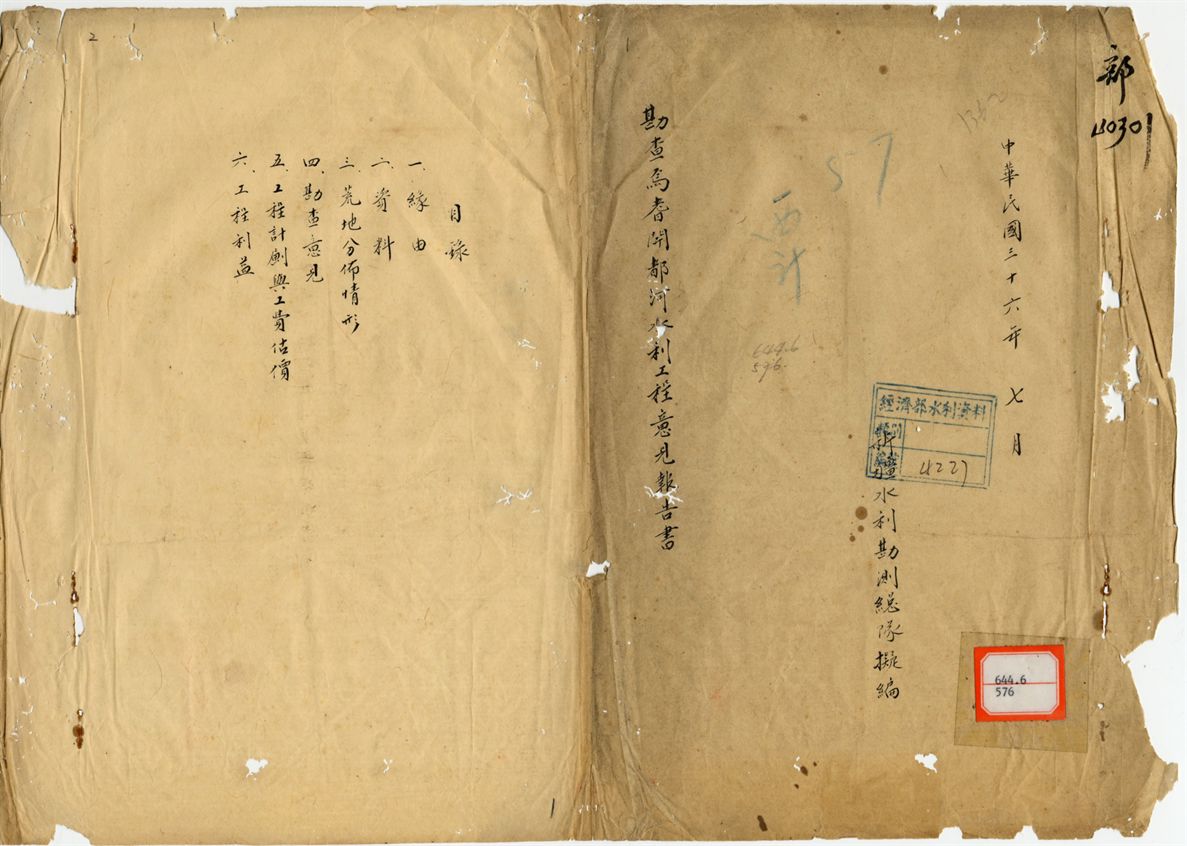 部
40301
中華民國三十六年 七月
經濟部水利資料
4227
新疆水利勘測總隊擬編
644.6
576
57
西計
644.6
576.
勘查焉耆開都河水利工程意見報告書
1
2
目錄
一、緣由
二、資料
三、荒地分佈情形
四、勘查意見
五、工程計劃與工費估價
六、工程利益
1